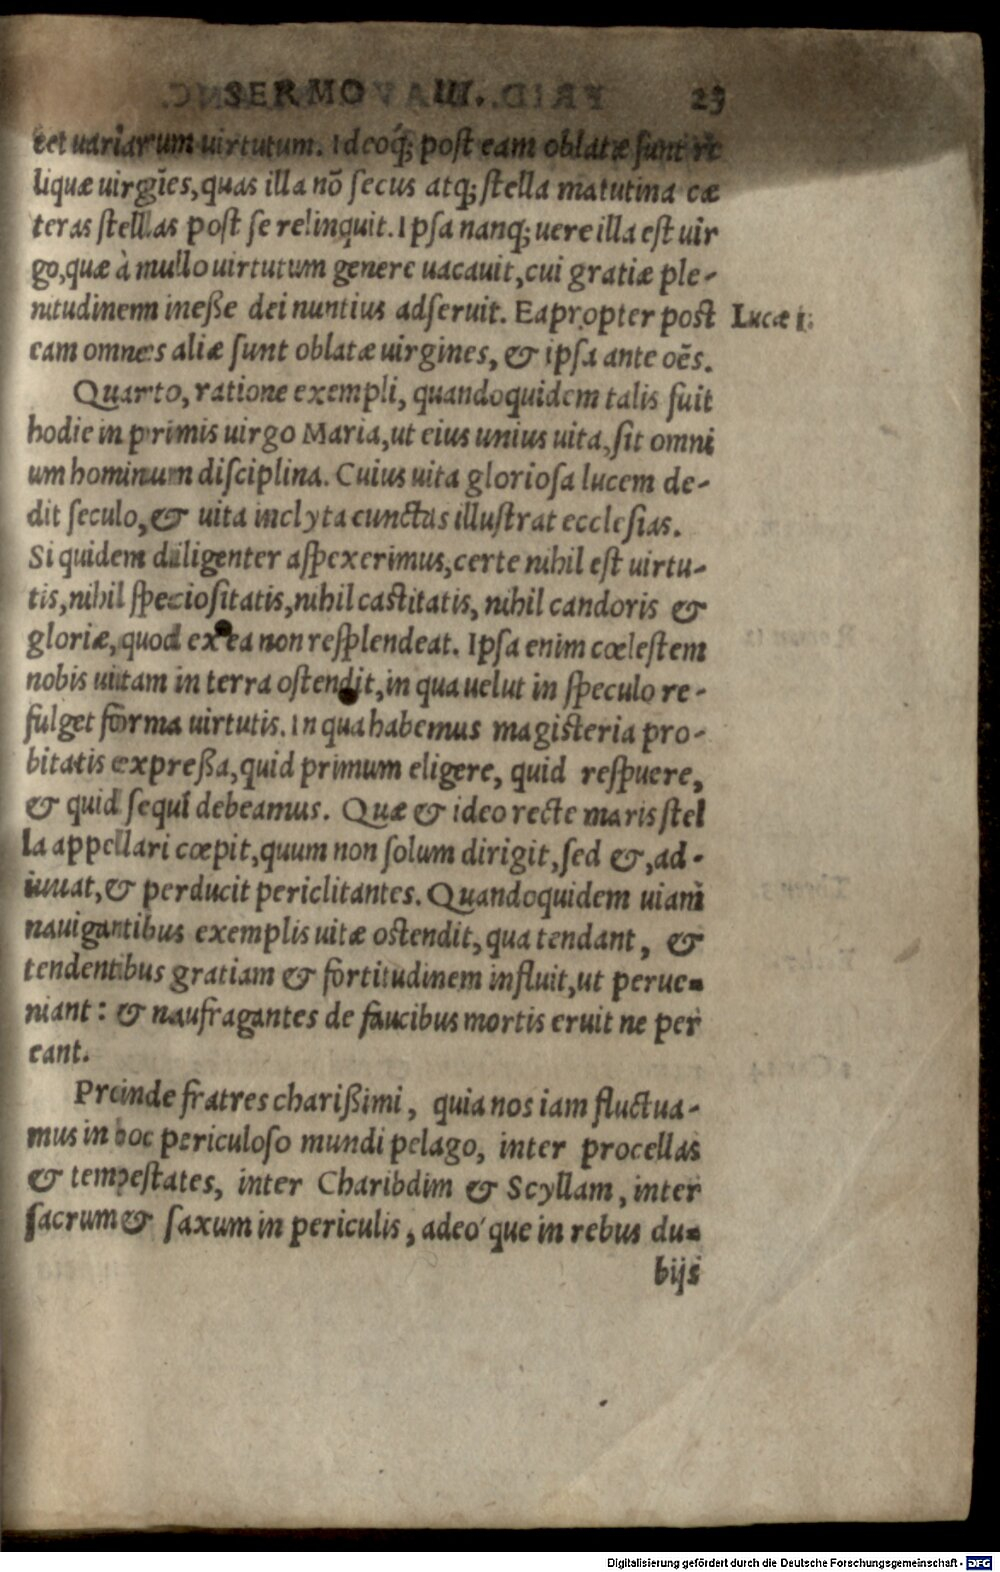 SERMO III. 23
tet uariarum uirtutum. Ideoq́; post eam oblatæ sunt re
liquæ uirgĩes, quas illa nõ secus atq; stella matutina cæ
teras stellas post se relinquit. Ipsa nanq; uere illa est uir
go, quæ à nullo uirtutum genere uacauit, cui gratiæ ple-
nitudinem inesse dei nuntius adseruit. Eapropter post Lucæ 1.
eam omnes aliæ sunt oblatæ uirgines, & ipsa ante oẽs.
Quarto, ratione exempli, quandoquidem talis fuit
hodie in primis uirgo Maria, ut eius unius uita, sit omni
um hominum disciplina. Cuius uita gloriosa lucem de-
dit seculo, & uita inclyta cunctas illustrat ecclesias.
Si quidem diligenter aspexerimus, certe nihil est uirtu-
tis, nihil speciositatis, nihil castitatis, nihil candoris &
gloriæ, quod ex ea non resplendeat. Ipsa enim cœlestem
nobis uitam in terra ostendit, in qua uelut in speculo re-
fulget forma uirtutis. In qua habemus magisteria pro-
bitatis expressa, quid primum eligere, quid respuere,
& quid sequi debeamus. Quæ & ideo recte maris stel
la appellari cœpit, quum non solum dirigit, sed &, ad-
iuuat, & perducit periclitantes. Quandoquidem uiam
nauigantibus exemplis uitæ ostendit, qua tendant, &
tendentibus gratiam & fortitudinem influit, ut perue-
niant: & naufragantes de faucibus mortis eruit ne per
eant.
Proinde fratres charissimi, quia nos iam fluctua-
mus in hoc periculoso mundi pelago, inter procellas
& tempestates, inter Charibdim & Scyllam, inter
sacrum & saxum in periculis, adeo´que in rebus du-
bijs
Digitalisierung gefördert durch die Deutsche Forschungsgemeinschaft - DFG